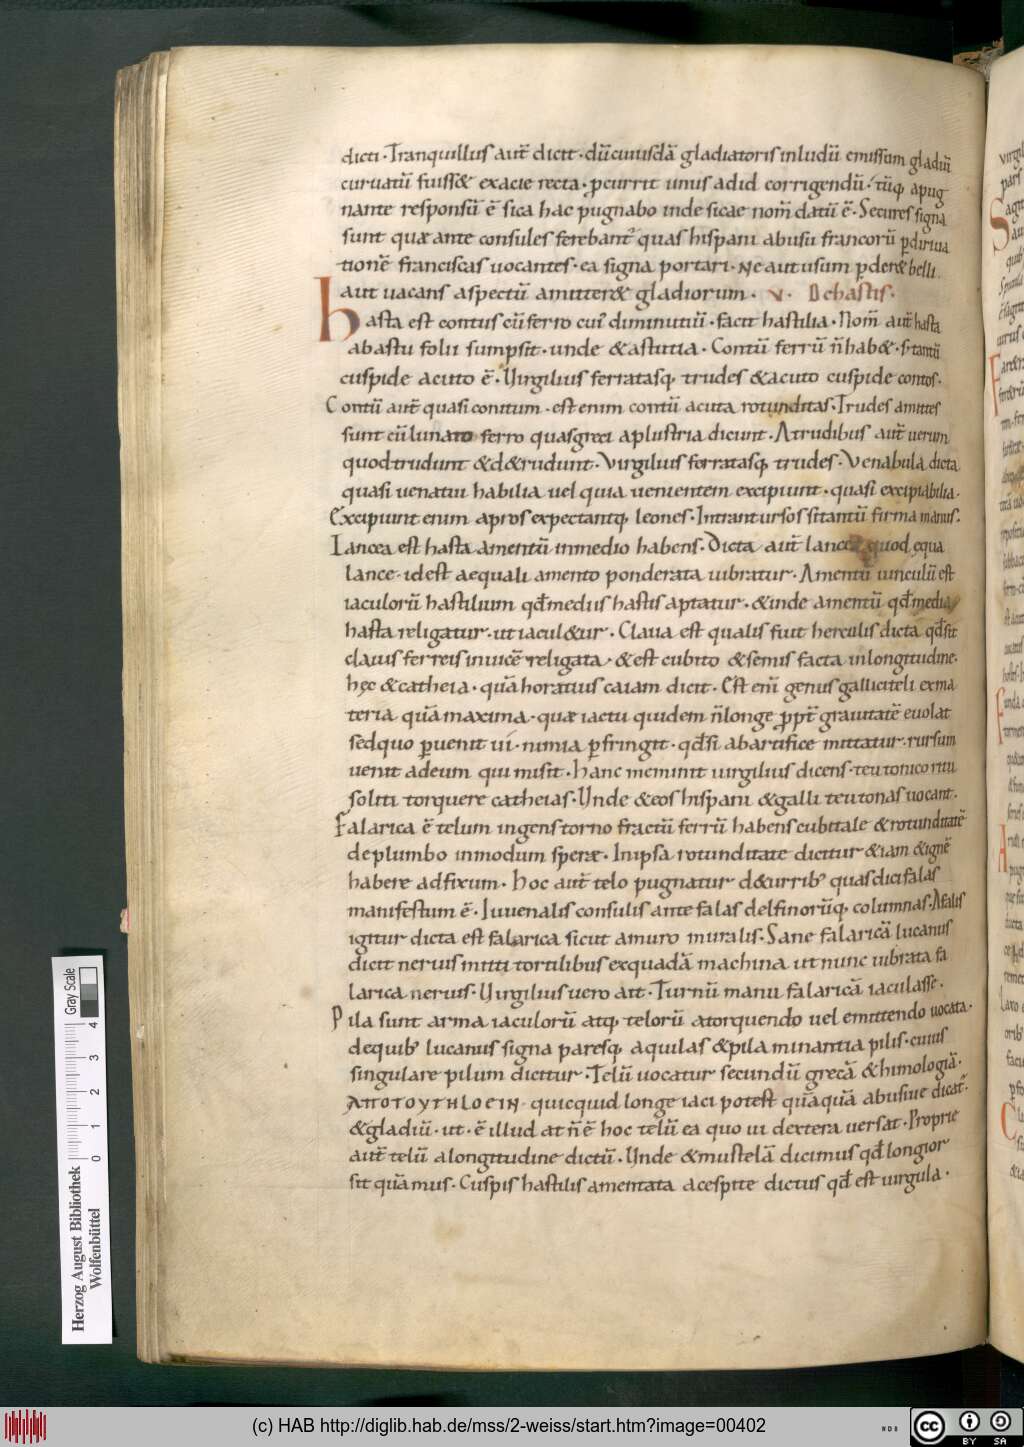 dicti · Tranquillus aut̄ dicit · dū cuiusdā gladiatoris in ludū emissum gladiū
curuatū fuiss& ex acie recta · ꝓcurrit unus ad id corrigendū · tūq; apug
nante responsū ē sica hac pugnabo inde sicae nom̄ datū ē · Secures signa
sunt quæ ante consules ferebant᷑ quas hispani ab usu francorū ꝑ diriua
tionē franciscas uocantes · ea signa portari · Ne aut usum ꝑder& belli
aut uacans aspectū amitter& gladiorum · V · De hastis ·
Hasta est contus cū ferro cui᷑ diminutiuū · facit hastilia · Nom̄ aut̄ hasta
ab astu folii sumpsit · unde & astutia · Contū ferrū n̄ hab& · s; tantū
cuspide acuto ē · Virgilius ferratasq; trudes & acuto cuspide contos ·
Contū aut̄ quasi conitum · est enim contū acuta rotunditas · Trudes amites
sunt cū lunato ferro quas greci aplustria dicunt · A trudibus aut̄ uerum
quod trudunt & d&rudunt · Virgilius ferratasq; trudes · Venabula dicta
quasi uenatui habilia uel quia uenientem excipiunt · quasi excipiabilia ·
Excipiunt enim apros expectantq; leones · Intrant ursos si tantū firma manus ·
Lancea est hasta amentū in medio habens · Dicta aut̄ lancea quod ęqua
lance · id est aequali amento ponderata uibratur · Amentū uinculū est
iaculorū hastilium qd̄ mediis hastis aptatur · & inde amentū qd̄ media
hasta religatur · ut iacul&ur · Claua est qualis fuit herculis dicta qd̄ sit
clauis ferreis inuicē religata · & est cubito & semis facta in longitudine ·
hęc & catheia · quā horatius caiam dicit · Est enī genus gallici teli ex ma
teria quā maxima · quæ iactu quidem n̄ longe ꝓpt̄ grauitatē euolat
sed quo ꝑuenit ui · nimia ꝑfringit · qd̄ si ab artifice mittatur · rursum
uenit ad eum qui misit · Hanc meminit uirgilius dicens · teutonico ritu
soliti torquere catheias · Unde & eos hispani & galli teutonas uocant ·
Falarica ē telum ingens torno fractū ferrū habens cubitale & rotunditatē
de plumbo in modum speræ · In ipsa rotunditate dicitur & iam & ignē
habere adfixum · Hoc aut̄ telo pugnatur d& urrib; quas dici falas
manifestum ē · Iuuenalis consulis ante falas delfinorūq; columnas · A falis
igitur dicta est falarica sicut a muro muralis · Sane falaricā lucanus
dicit neruis mitti tortilibus ex quadā machina ut nunc uibrata fa
larica neruis · Virgilius uero ait · Turnū manu falaricā iaculasse ·
Pila sunt arma iaculorū atq; telorū a torquendo uel emittendo uocata ·
de quib; lucanus signa paresq; aquilas & pila minantia pilis · cuius
singulare pilum dicitur · Telū uocatur secundū grecā & himologiā ·
ΑΠΟΤΟΥΤΗΛΟΕΙΝ · quicquid longe iaci potest quāquā abusiue dicat᷑ ·
& gladiū · ut · ē illud at n̄ ē hoc telū ea quo ui dextera uersat · Proprie
aut̄ telū a longitudine dictū · Unde & mustelā dicimus qd̄ longior
sit quā mus · Cuspis hastilis amentata a cespite dictus qd̄ est uirgula ·
Herzog August Bibliothek
Wolfenbüttel
0 1 2 3 4
Gray Scale
(c) HAB http://diglib.hab.de/mss/2-weiss/start.htm?image=00402
WDB
cc BY SA